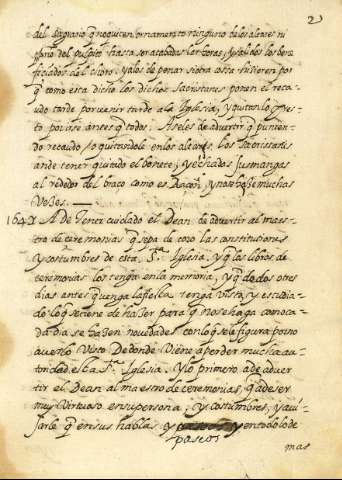 2
del sagrario q no quiten ornamento ninguno de los altares ni
paño del pulpito hasta ser acabadas las horas, y salidos los bene
ficiados del choro: y a los de penar si otra cosa hizieren por
q como esta dicho los dichos sacristanes ponen el reca
udo tarde por venir tarde a la Iglesia, y quitanlo pres
to por irse antes q todos: Aseles de advertir q punien
do recaudo, o quitandole en los altares los sacristanes
an de tener quitado el bonete, y echadas las mangas
al rededor del braço como es Raçon, y no se haze muchas
vezes.
A De Tener cuidado el Dean de advertir al maes
tro de ceremonias q sepa de coro las constituciones
y costumbres de esta Sta Iglesia, y q los libros de
ceremonias los tenga en la memoria, y q dos o tres
dias antes q venga la fiesta tenga visto, y estudia
do lo q se tiene de hazer para q no se haga como ca
da dia se hazen novedades con lo q se le figura por no
averlo visto De donde viene a perder mucha au
toridad esta Sta Iglesia. Y lo primero a de adver
tir el Dean al maestro de ceremonias, q a de ser
muy virtuoso en su persona, y costumbres, y avi
sarle q en sus hablas, y en todo lo de
paseos
mas